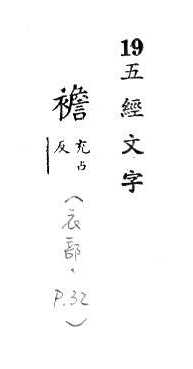 19五經文字
襜 充占反
(衣部·P.32)